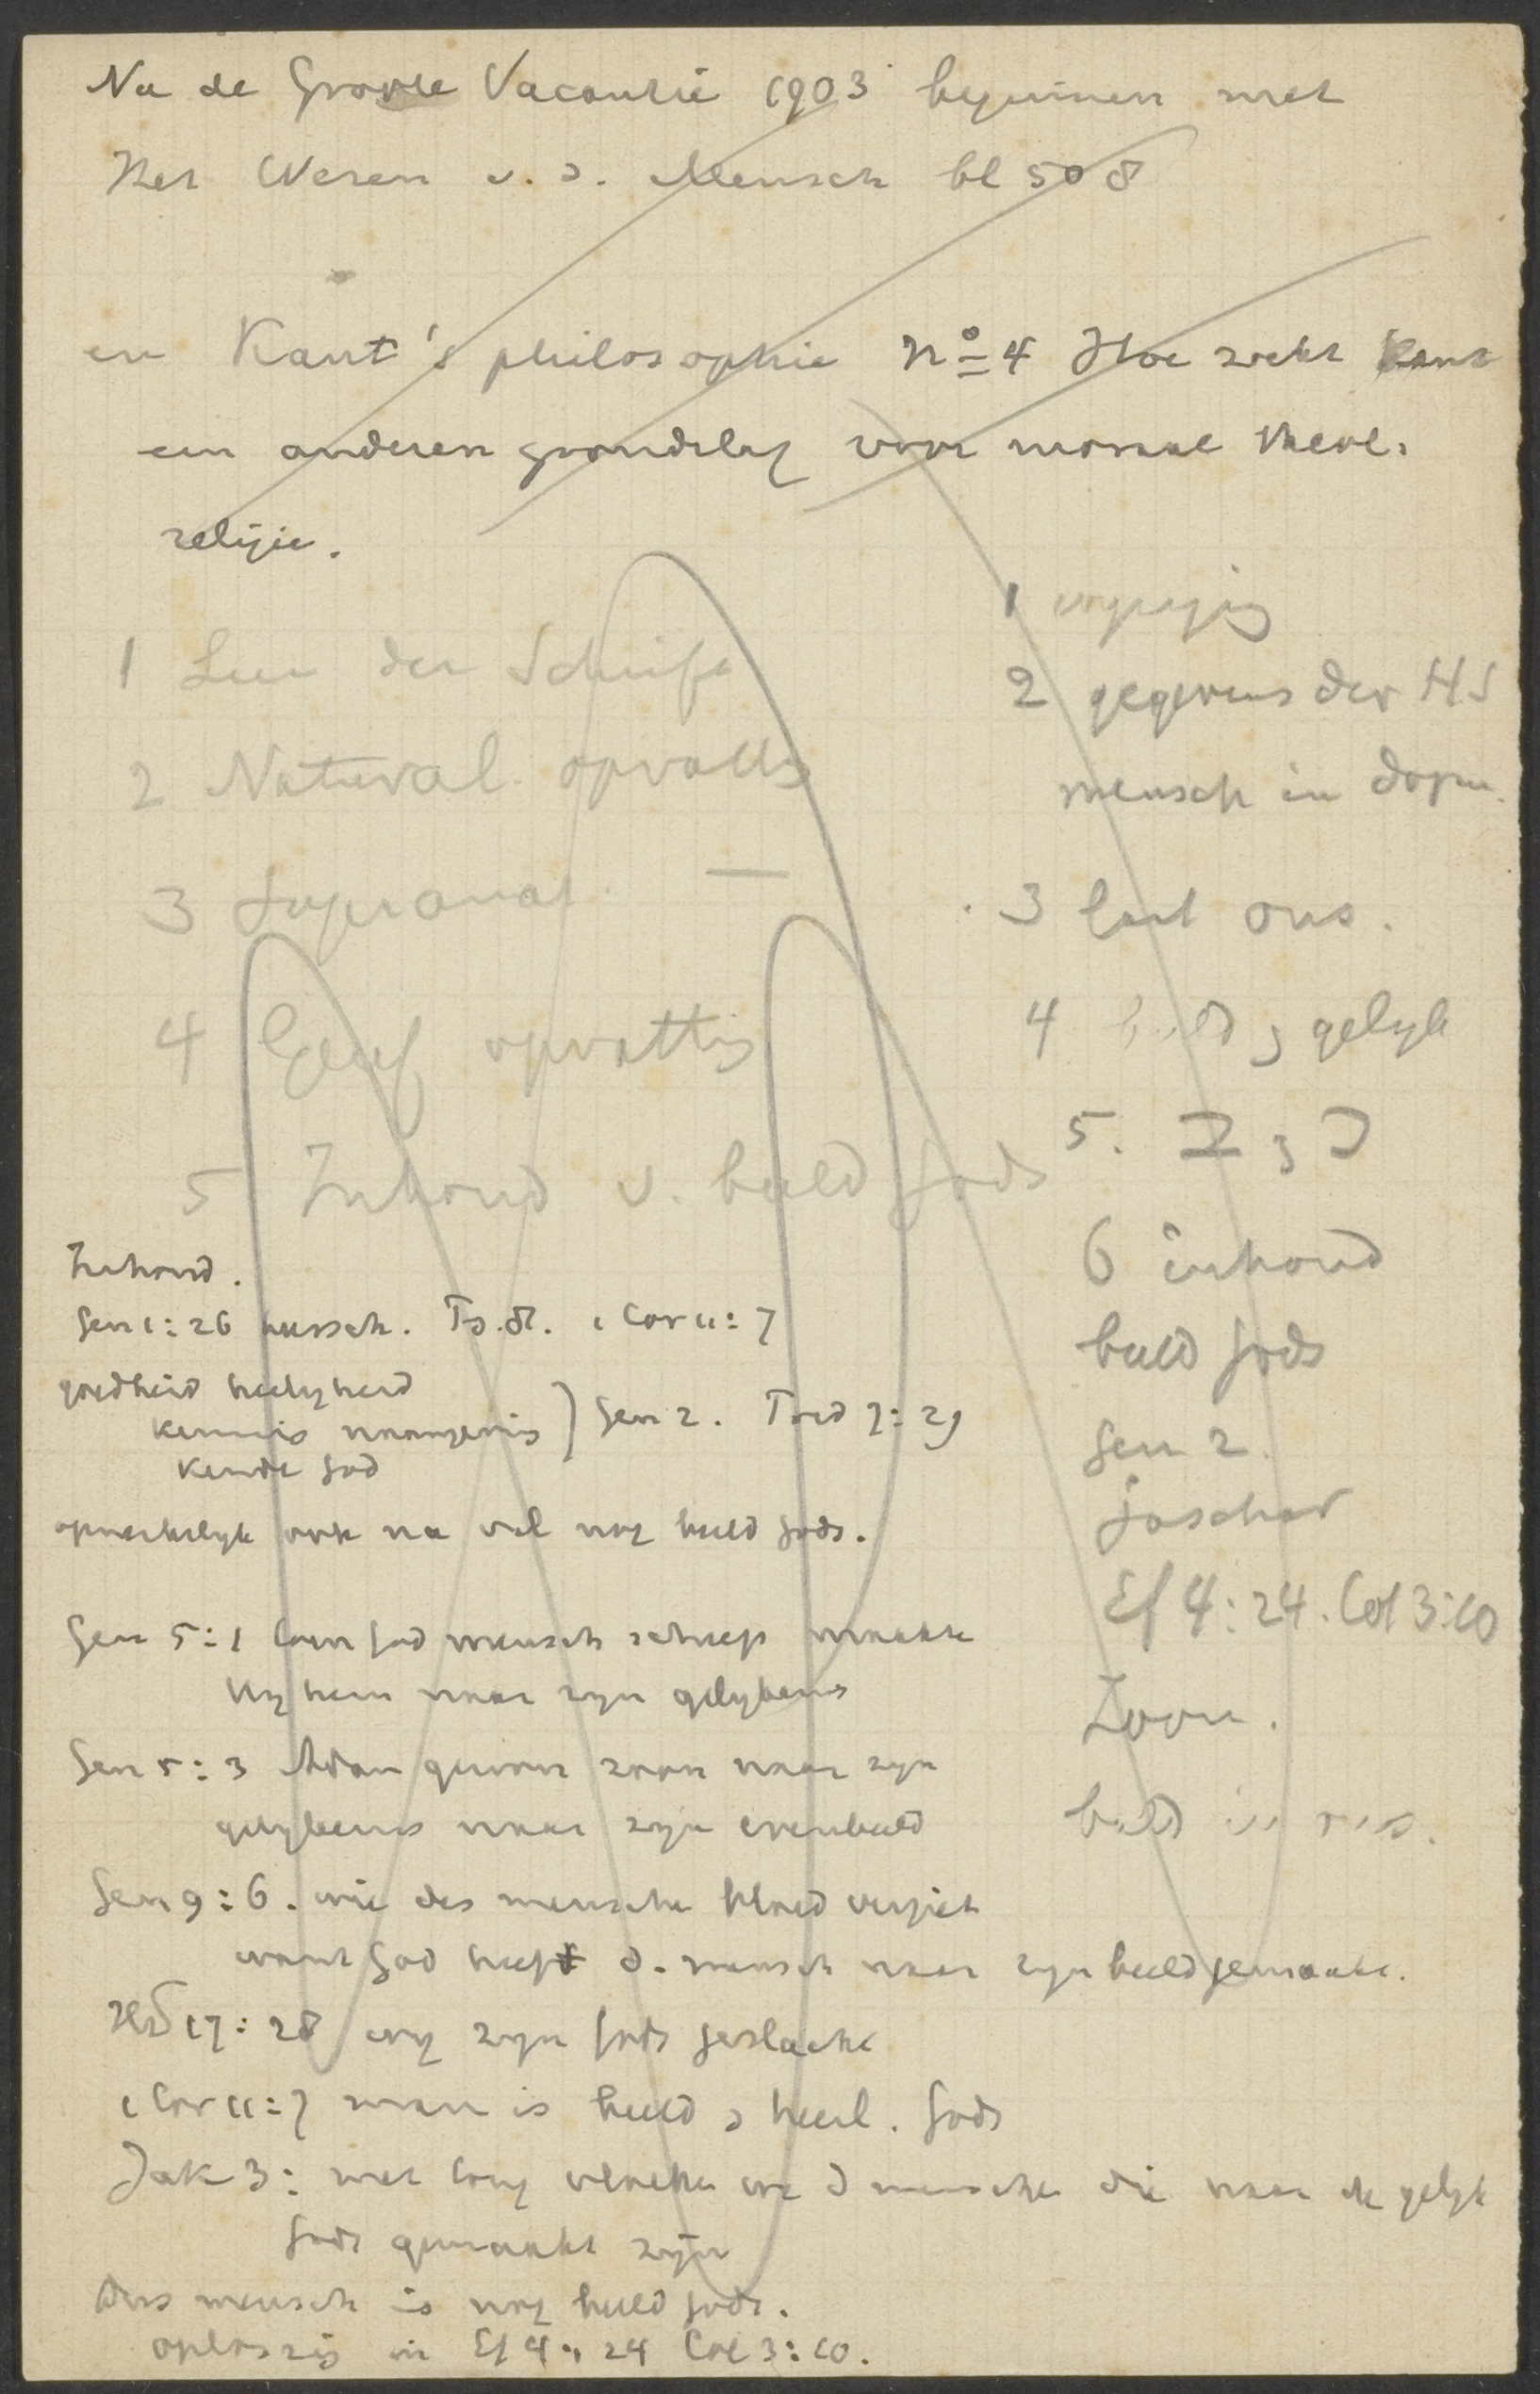 Na de Groote Vacantie 1903 beginnen met
Het Wezen v. d. Mensch bl 508
en Kant's philosophie No 4 Hoe zoekt Kant
een anderen grondslag voor moraal theol.
religie.
1 Leer der Schrift
2 Natural. opvattg
3 Supranat. —
4 Geref opvattig
5 Inhoud v. beeld Gods
1
2 gegevens der HS
mensch in dogm.
3 laat ons.
4 beeld & gelijk
5.
6 inhoud
beeld Gods
Gen 2.
jaschar
Ef 4:24. Col 3:10
Zoon.
Inhoud.
Gen 1:26 mensch. 1 Cor 11:7
goedheid heiligheid
kennis
kende God
} Gen 2. Pred 7:29
opmerkelijk ook na val nog beeld Gods.
Gen 5:1 toen God mensch schiep maakte
Hij hem naar zijn gelijkenis
Gen 5:3 Adam gewon zoon naar zijn
gelijkenis naar zijn evenbeeld
Gen 9:6. wie des menschen bloed vergiet
want God heeft d. mensch naar zijn beeld gemaakt.
Hd 17:28 wij zijn Gods geslacht
1 Cor 11:7 man is beeld & heerl. Gods
Jak 3: met tong vloeken we d menschen die naar de gelijk
Gods gemaakt zijn
Dus mensch is nog beeld Gods.
oplossig in Ef 4:24 Col 3:10.